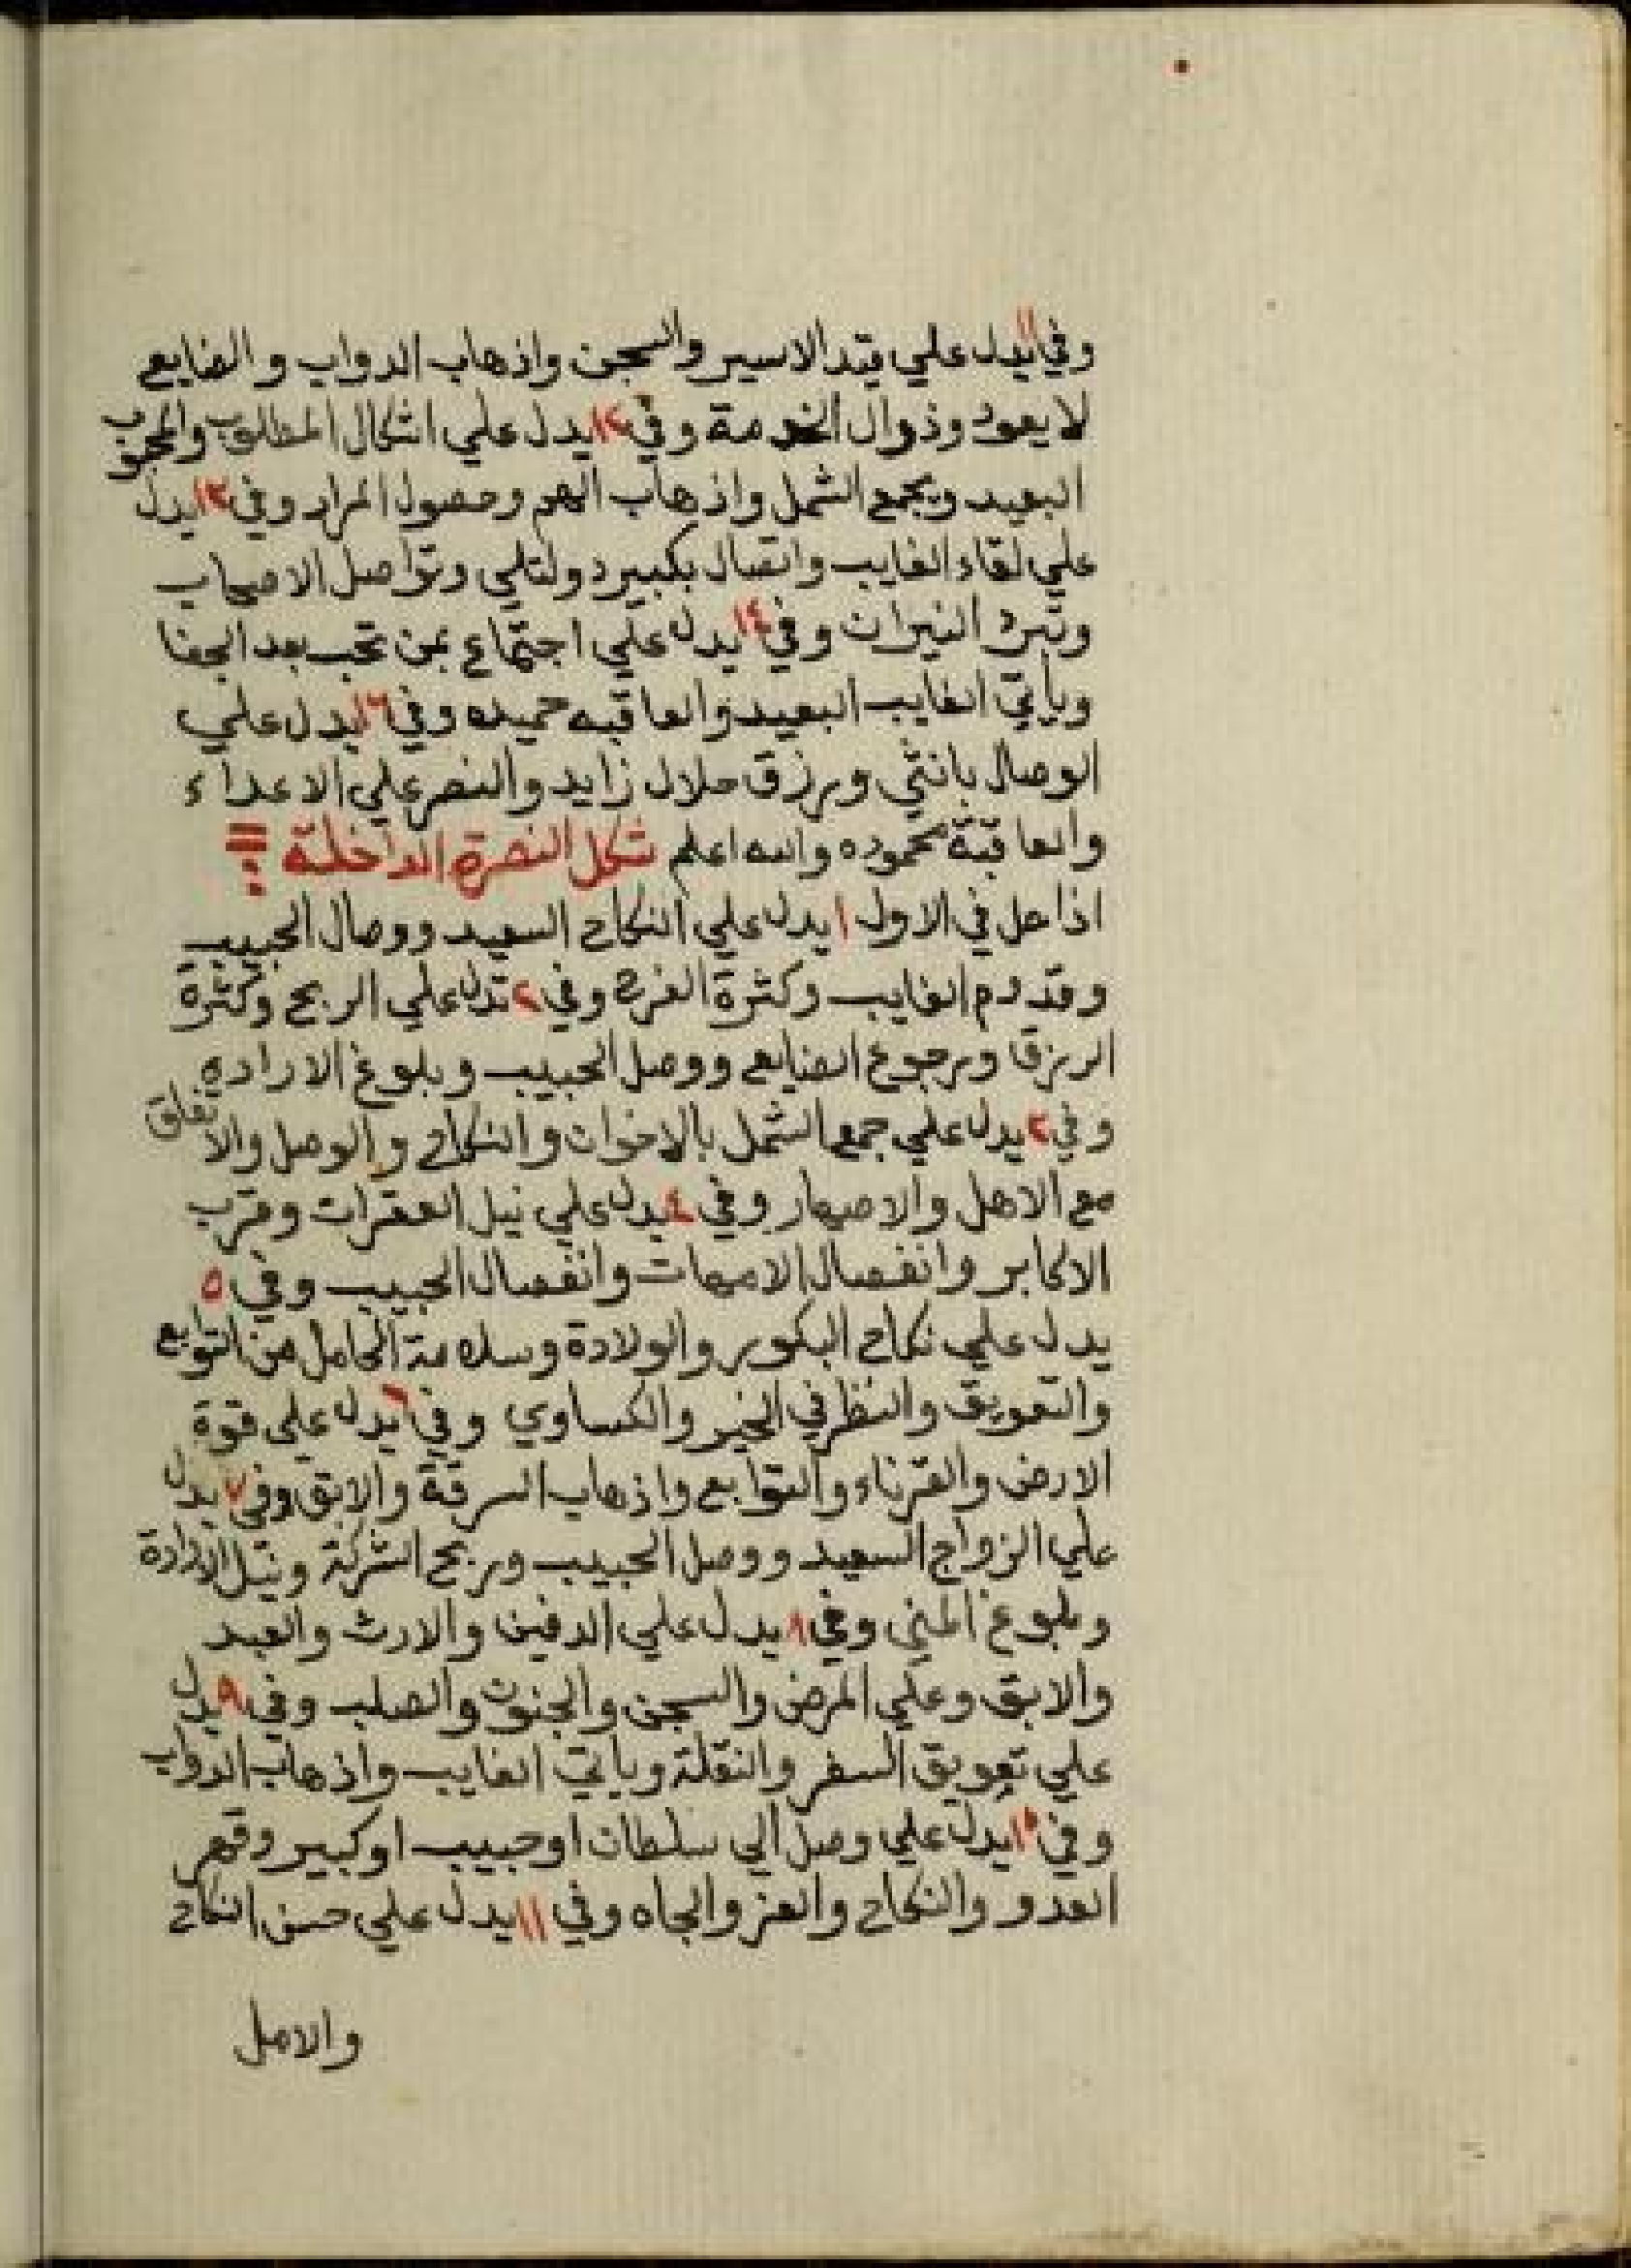 وفي ١١ يدل علي قيد الاسير والسجن واذهاب الدواب والضايع
لا يعود وزوال الخدمة وفي ١٢ يدل علي اشكال المطلوب والمحبوب
البعيد ويجمع الشمل واذهاب الهم وحصول المراد وفي ١٣ يدل
علي لقاء الغايب واتصال بكبير دولتلي وتواصل الاصحاب
وتبرد النيران وفي ١٤ يدل علي اجتماع بمن تحب بعد الجفا
وياتي الغايب البعيد والعاقبه حميده وفي ١٦ يدل علي
الوصال بانثي ورزق حلال زايد والنصر علي الاعداء
والعاقبة محموده والله اعلم شكل النصرة الداخلة
اذا حل في الاول ١ يدل علي النكاح السعيد ووصال الحبيب
وقدوم الغايب وكثرة الفرح وفي ٢ تدل علي الربح وكثرة
الرزق ورجوع الضايع ووصل الحبيب وبلوغ الاراده
وفي ٣ يدل علي جمع الشمل بالاخوان والنكاح والوصل والاتفاق
مع الاهل والاصهار وفي ٤ يدل علي نيل العقرات وقرب
الاكابر وانفصال الامهات وانفصال الحبيب وفي ٥
يدل علي نكاح البكور والولادة وسلامة الحامل من التوابع
والتعويق والنظر في الخير والكساوي وفي ٦ يدل علي قوة
الارض والقرناء والتوابع واذهاب السرقة والابق وفي ٧ يدل
علي الزواج السعيد ووصل الحبيب وربح الشركة ونيل الارادة
وبلوغ المني وفي ٨ يدل علي الدفين والارث والعبد
والابق وعلي المرض والسجن والجنون والصلب وفي ٩ يدل
علي تعويق السفر والنقلة وياتي الغايب واذهاب الدواب
وفي ١٠ يدل علي وصل الي سلطان او حبيب او كبير وقهر
العدو والنكاح والعز والجاه وفي ١١ يدل علي حسن النكاح
والامل